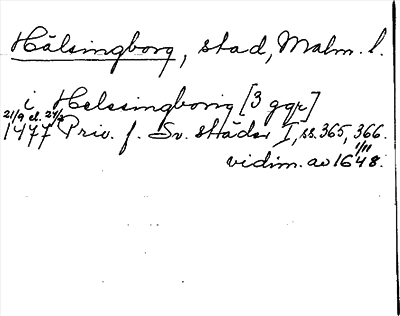 Hälsingborg, stad, Malm. l.
i Helssingborig [3 ggr]
21/9 el. 24/2
1477 Priv. f. Sv. städer I, ss. 365, 366.
vidim. av 1648. 1/11